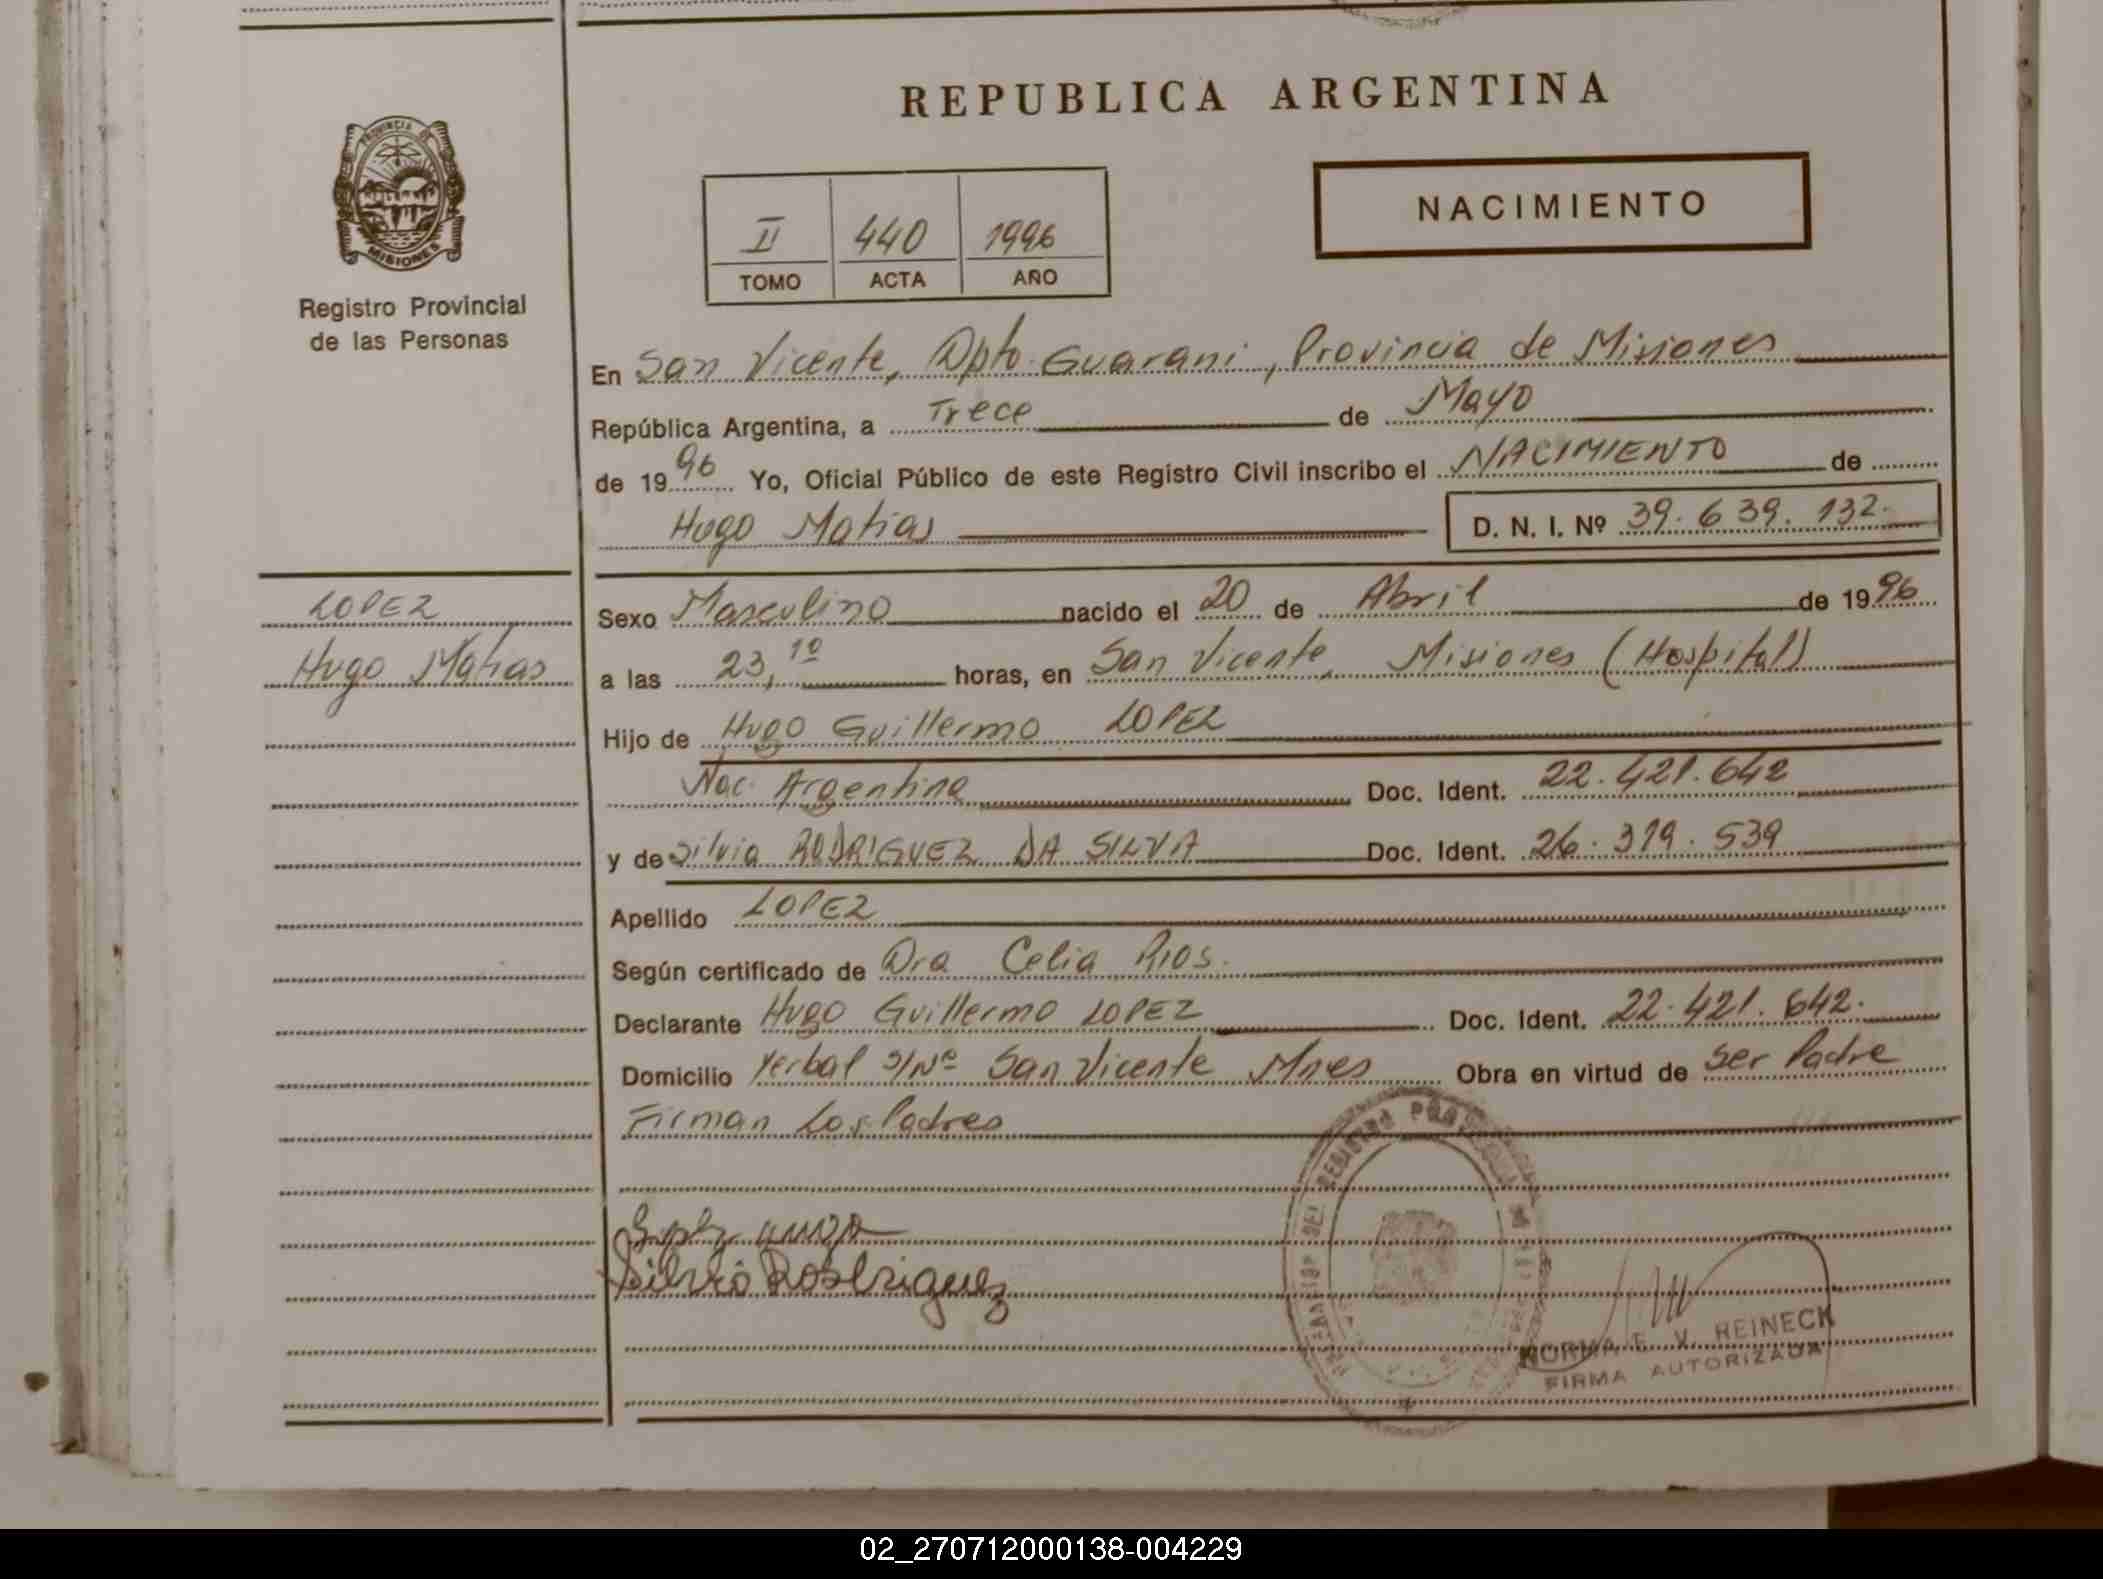 REPUBLICA ARGENTINA
PROVINCIA DE
MISIONES
Registro Provincial
de las Personas
II 440 1996
TOMO ACTA AÑO
NACIMIENTO
En San Vicente, Dpto. Guarani, Provincia de Misiones
República Argentina, a Trece de Mayo
de 1996 Yo, Oficial Público de este Registro Civil inscribo el NACIMIENTO de
Hugo Matias D. N. I. Nº 39.639.132.
LOPEZ
Hugo Matias
Sexo Masculino nacido el 20 de Abril de 1996
a las 23,10 horas, en San Vicente, Misiones (Hospital)
Hijo de Hugo Guillermo LOPEZ
Nac. Argentina Doc. Ident. 22.421.642
y de Silvia RODRIGUEZ DA SILVA Doc. Ident. 26.319.539
Apellido LOPEZ
Según certificado de Dra Celia Rios.
Declarante Hugo Guillermo LOPEZ Doc. Ident. 22.421.642.
Domicilio Yerbal S/Nº San Vicente Mnes Obra en virtud de ser Padre
Firman Los Padres
Silvia Rodriguez
NORMA E. V. REINECK
FIRMA AUTORIZADA
02_270712000138-004229